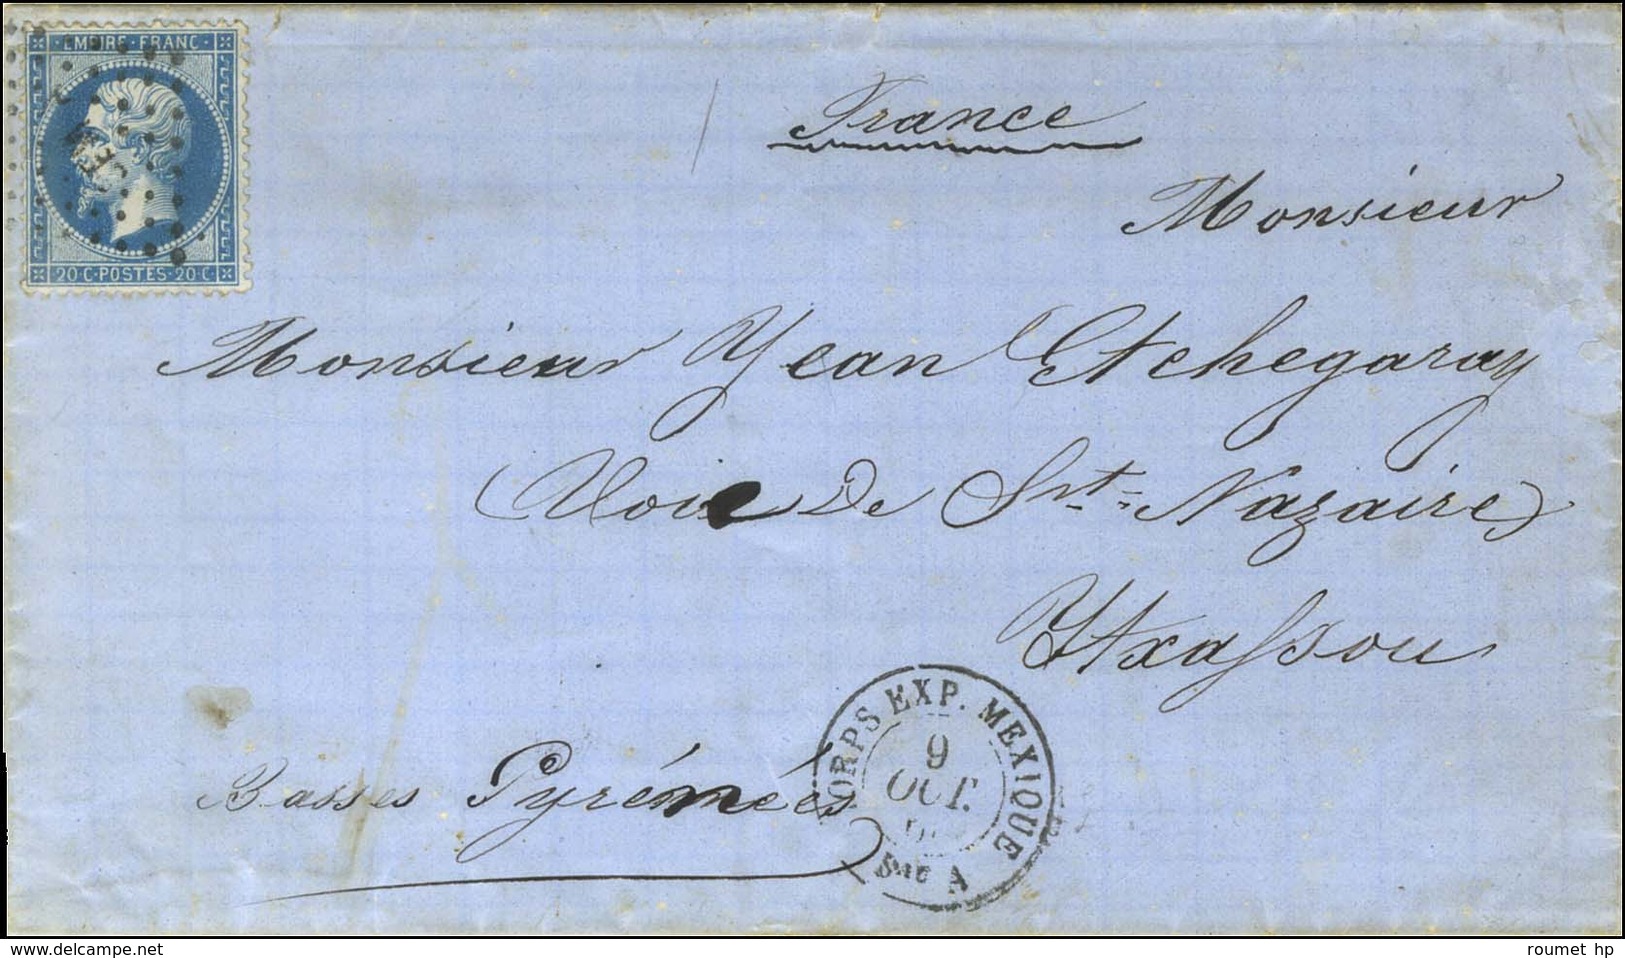 EMPIRE FRANC
20 C POSTES 20 C
France
Monsieur
Monsieur Jean Etchegaray
Voie De St Nazaire
Ytxassou
Basses Pyrénées
CORPS EXP. MEXIQUE
9
OCT.
Bau A
www.delcampe.net
roumet hp